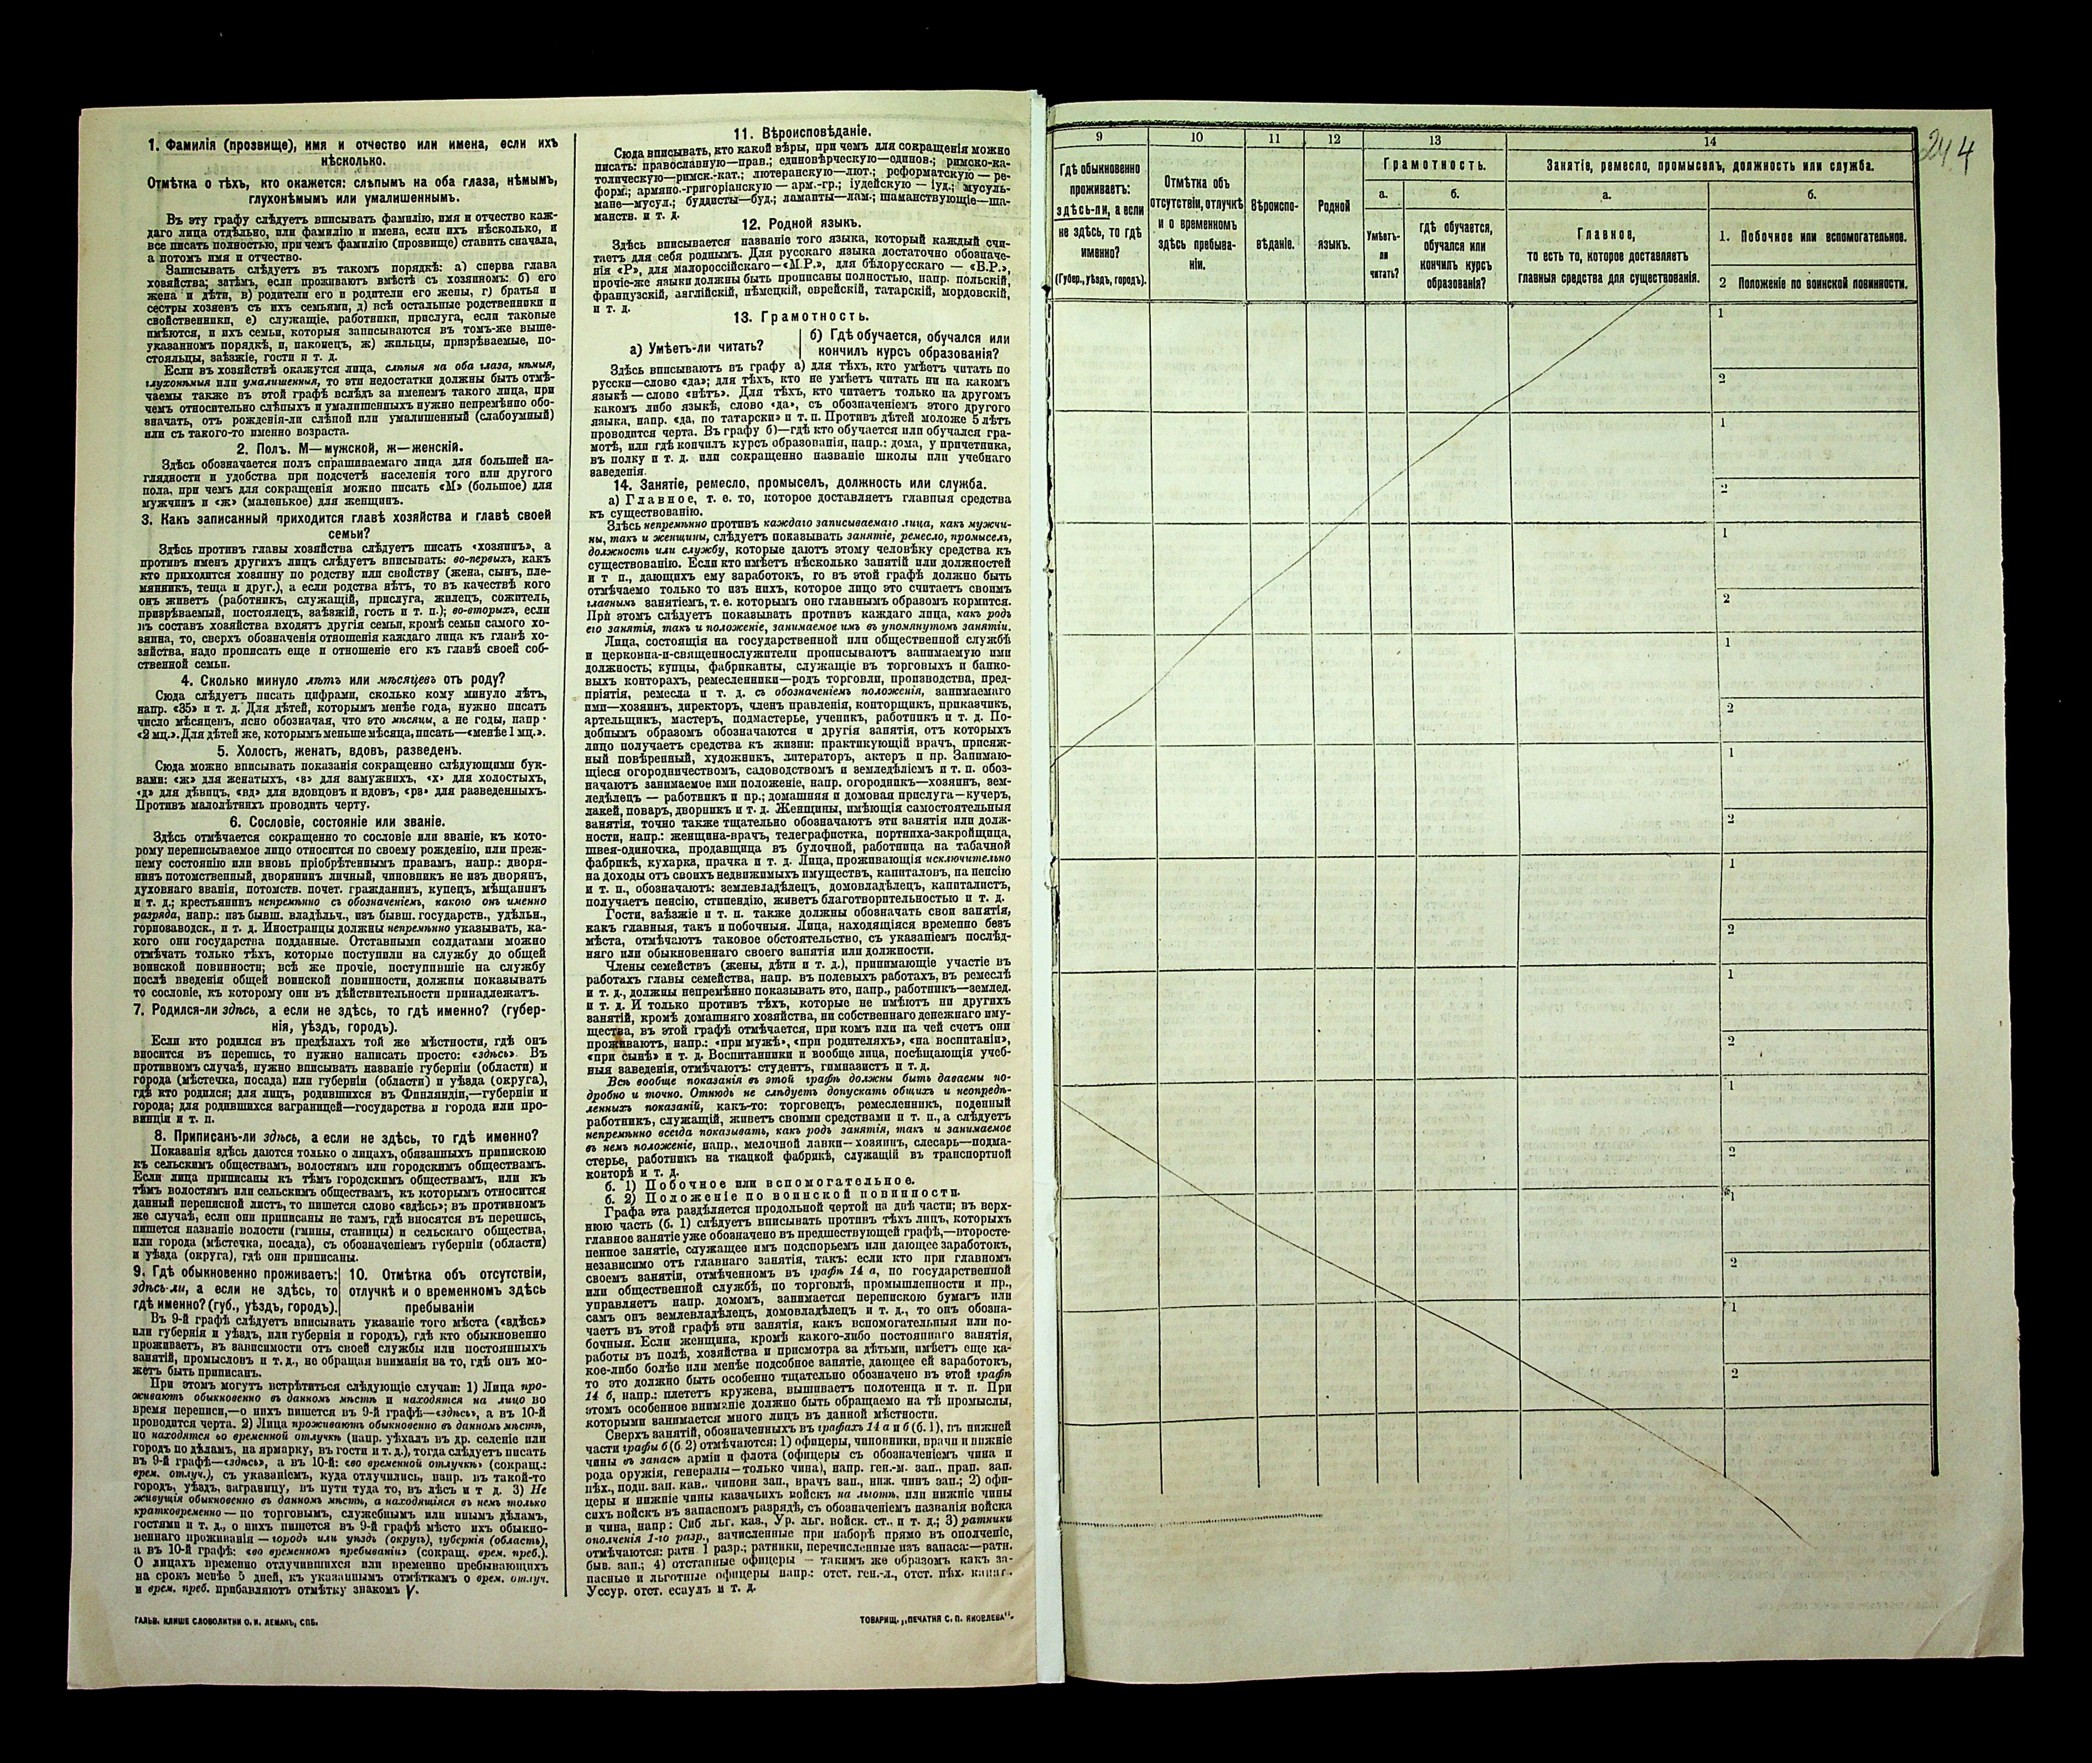 1. Фамилія (прозвище), имя и отчество или имена, если ихъ
нѣсколько.
Отмѣтка о тѣхъ, кто окажется: слѣпымъ на оба глаза, нѣмымъ,
глухонѣмымъ или умалишеннымъ.
Въ эту графу слѣдуетъ вписывать фамилію, имя и отчество каж-
даго лица отдѣльно, или фамилію и имена, если ихъ нѣсколько, и
все писать полностью, при чемъ фамилію (прозвище) ставить сначала,
а потомъ имя и отчество.
Записывать слѣдуетъ въ такомъ порядкѣ: а) сперва глава
хозяйства; затѣмъ, если проживаютъ вмѣстѣ съ хозяиномъ: б) его
жена и дѣти, в) родители его и родители его жены, г) братья и
сестры хозяевъ съ ихъ семьями, д) всѣ остальные родственники и
свойственники, е) служащіе, работники, прислуга, если таковые
имѣются, и ихъ семьи, которыя записываются въ томъ-же выше-
указанномъ порядкѣ, и, наконецъ, ж) жильцы, призрѣваемые, по-
стояльцы, заѣзжіе, гости и т. д.
Если въ хозяйствѣ окажутся лица, слѣпыя на оба глаза, нѣмыя,
глухонѣмыя или умалишенныя, то эти недостатки должны быть отмѣ-
чаемы также въ этой графѣ вслѣдъ за именемъ такого лица, при
чемъ относительно слѣпыхъ и умалишенныхъ нужно непремѣнно обо-
значать, отъ рожденія-ли слѣпой или умалишенный (слабоумный)
или съ такого-то именно возраста.
2. Полъ. М—мужской, ж—женскій.
Здѣсь обозначается полъ спрашиваемаго лица для большей на-
глядности и удобства при подсчетѣ населенія того или другого
пола, при чемъ для сокращенія можно писать «М» (большое) для
мужчинъ и «ж» (маленькое) для женщинъ.
3. Какъ записанный приходится главѣ хозяйства и главѣ своей
семьи?
Здѣсь противъ главы хозяйства слѣдуетъ писать «хозяинъ», а
противъ именъ другихъ лицъ слѣдуетъ вписывать: во-первыхъ, какъ
кто приходится хозяину по родству или свойству (жена, сынъ, пле-
мянникъ, теща и друг.), а если родства нѣтъ, то въ качествѣ кого
онъ живетъ (работникъ, служащій, прислуга, жилецъ, сожитель,
призрѣваемый, постоялецъ, заѣзжій, гость и т. п.); во-вторыхъ, если
въ составъ хозяйства входятъ другія семьи, кромѣ семьи самого хо-
зяина, то, сверхъ обозначенія отношенія каждаго лица къ главѣ хо-
зяйства, надо прописать еще и отношеніе его къ главѣ своей соб-
ственной семьи.
4. Сколько минуло лѣтъ или мѣсяцевъ отъ роду?
Сюда слѣдуетъ писать цифрами, сколько кому минуло лѣтъ,
напр. «35» и т. д. Для дѣтей, которымъ менѣе года, нужно писать
число мѣсяцевъ, ясно обозначая, что это мѣсяцы, а не годы, напр.
«2 мц.». Для дѣтей же, которымъ меньше мѣсяца, писать—«менѣе 1 мц.».
5. Холостъ, женатъ, вдовъ, разведенъ.
Сюда можно вписывать показанія сокращенно слѣдующими бук-
вами: «ж» для женатыхъ, «з» для замужнихъ, «х» для холостыхъ,
«д» для дѣвицъ, «вд» для вдовцовъ и вдовъ, «рз» для разведенныхъ.
Противъ малолѣтнихъ проводить черту.
6. Сословіе, состояніе или званіе.
Здѣсь отмѣчается сокращенно то сословіе или званіе, къ кото-
рому переписываемое лицо относится по своему рожденію, или преж-
нему состоянію или вновь пріобрѣтеннымъ правамъ, напр.: дворя-
нинъ потомственный, дворянинъ личный, чиновникъ не изъ дворянъ,
духовнаго званія, потомств. почет. гражданинъ, купецъ, мѣщанинъ
и т. д.; крестьянинъ непремѣнно съ обозначеніемъ, какого онъ именно
разряда, напр.: изъ бывш. владѣльч., изъ бывш. государств., удѣльн.,
горнозаводск., и т. д. Иностранцы должны непремѣнно указывать, ка-
кого они государства подданные. Отставными солдатами можно
отмѣчать только тѣхъ, которые поступили на службу до общей
воинской повинности; всѣ же прочіе, поступившіе на службу
послѣ введенія общей воинской повинности, должны показывать
то сословіе, къ которому они въ дѣйствительности принадлежатъ.
7. Родился-ли здѣсь, а если не здѣсь, то гдѣ именно? (губер-
нія, уѣздъ, городъ).
Если кто родился въ предѣлахъ той же мѣстности, гдѣ онъ
вносится въ перепись, то нужно написать просто: «здѣсь». Въ
противномъ случаѣ, нужно вписывать названіе губерніи (области) и
города (мѣстечка, посада) или губерніи (области) и уѣзда (округа),
гдѣ кто родился; для лицъ, родившихся въ Финляндіи,—губерніи и
города; для родившихся заграницей—государства и города или про-
винціи и т. п.
8. Приписанъ-ли здѣсь, а если не здѣсь, то гдѣ именно?
Показанія здѣсь даются только о лицахъ, обязанныхъ припискою
къ сельскимъ обществамъ, волостямъ или городскимъ обществамъ.
Если лица приписаны къ тѣмъ городскимъ обществамъ, или къ
тѣмъ волостямъ или сельскимъ обществамъ, къ которымъ относится
данный переписной листъ, то пишется слово «здѣсь»; въ противномъ
же случаѣ, если они приписаны не тамъ, гдѣ вносятся въ перепись,
пишется названіе волости (гмины, станицы) и сельскаго общества,
или города (мѣстечка, посада), съ обозначеніемъ губерніи (области)
и уѣзда (округа), гдѣ они приписаны.
9. Гдѣ обыкновенно проживаетъ:
здѣсь-ли, а если не здѣсь, то
гдѣ именно? (губ., уѣздъ, городъ).
10. Отмѣтка объ отсутствіи,
отлучкѣ и о временномъ здѣсь
пребываніи
Въ 9-й графѣ слѣдуетъ вписывать указаніе того мѣста («здѣсь»
или губернія и уѣздъ, или губернія и городъ), гдѣ кто обыкновенно
проживаетъ, въ зависимости отъ своей службы или постоянныхъ
занятій, промысловъ и т. д., не обращая вниманія на то, гдѣ онъ мо-
жетъ быть приписанъ.
При этомъ могутъ встрѣтиться слѣдующіе случаи: 1) Лица про-
живаютъ обыкновенно въ данномъ мѣстѣ и находятся на лицо во
время переписи,—о нихъ пишется въ 9-й графѣ—«здѣсь», а въ 10-й
проводится черта. 2) Лица проживаютъ обыкновенно въ данномъ мѣстѣ,
но находятся во временной отлучкѣ (напр. уѣхалъ въ др. селеніе или
городъ по дѣламъ, на ярмарку, въ гости и т. д.), тогда слѣдуетъ писать
въ 9-й графѣ—«здѣсь», а въ 10-й: «во временной отлучкѣ» (сокращ.:
врем. отлуч.), съ указаніемъ, куда отлучились, напр. въ такой-то
городъ, уѣздъ, заграницу, въ пути туда то, въ лѣсъ и т д. 3) Не
живущія обыкновенно въ данномъ мѣстѣ, а находящіяся въ немъ только
кратковременно — по торговымъ, служебнымъ или инымъ дѣламъ,
гостями и т. д., о нихъ пишется въ 9-й графѣ мѣсто ихъ обыкно-
веннаго проживанія — городъ или уѣздъ (округъ), губернія (область),
а въ 10-й графѣ: «во временномъ пребываніи» (сокращ. врем. преб.).
О лицахъ временно отлучившихся или временно пребывающихъ
на срокъ менѣе 5 дней, къ указаннымъ отмѣткамъ о врем. отлуч.
и врем. преб. прибавляютъ отмѣтку знакомъ V.
ГАЛЬВ. КЛИШЕ СЛОВОЛИТНИ О. И. ЛЕМАНЪ, СПБ.
11. Вѣроисповѣданіе.
Сюда вписывать, кто какой вѣры, при чемъ для сокращенія можно
писать: православную—прав.; единовѣрческую—единов.; римско-ка-
толическую—римск.-кат.; лютеранскую—лют.; реформатскую — ре-
форм.; армяно.-григоріанскую — арм.-гр.; іудейскую — іуд.; мусуль-
мане—мусул.; буддисты—буд.; ламаиты—лам.; шаманствующіе—ша-
манств. и т. д.
12. Родной языкъ.
Здѣсь вписывается названіе того языка, который каждый счи-
таетъ для себя роднымъ. Для русскаго языка достаточно обозначе-
нія «Р», для малороссійскаго—«М.Р.», для бѣлорусскаго — «Б.Р.»,
прочіе-же языки должны быть прописаны полностью, напр. польскій,
французскій, англійскій, нѣмецкій, еврейскій, татарскій, мордовскій,
и т. д.
13. Грамотность.
а) Умѣетъ-ли читать?
б) Гдѣ обучается, обучался или
кончилъ курсъ образованія?
Здѣсь вписываютъ въ графу а) для тѣхъ, кто умѣетъ читать по
русски—слово «да»; для тѣхъ, кто не умѣетъ читать ни на какомъ
языкѣ — слово «нѣтъ». Для тѣхъ, кто читаетъ только на другомъ
какомъ либо языкѣ, слово «да», съ обозначеніемъ этого другого
языка, напр. «да, по татарски» и т. п. Противъ дѣтей моложе 5 лѣтъ
проводится черта. Въ графу б)—гдѣ кто обучается или обучался гра-
мотѣ, или гдѣ кончилъ курсъ образованія, напр.: дома, у причетника,
въ полку и т. д. или сокращенно названіе школы или учебнаго
заведенія.
14. Занятіе, ремесло, промыселъ, должность или служба.
а) Главное, т. е. то, которое доставляетъ главныя средства
къ существованію.
Здѣсь непремѣнно противъ каждаго записываемаго лица, какъ мужчи-
ны, такъ и женщины, слѣдуетъ показывать занятіе, ремесло, промыселъ,
должность или службу, которые даютъ этому человѣку средства къ
существованію. Если кто имѣетъ нѣсколько занятій или должностей
и т п., дающихъ ему заработокъ, то въ этой графѣ должно быть
отмѣчаемо только то изъ нихъ, которое лицо это считаетъ своимъ
главнымъ занятіемъ, т. е. которымъ оно главнымъ образомъ кормится.
При этомъ слѣдуетъ показывать противъ каждаго лица, какъ родъ
его занятія, такъ и положеніе, занимаемое имъ въ упомянутомъ занятіи.
Лица, состоящія на государственной или общественной службѣ
и церковно-и-священнослужители прописываютъ занимаемую ими
должность; купцы, фабриканты, служащіе въ торговыхъ и банко-
выхъ конторахъ, ремесленники—родъ торговли, производства, пред-
пріятія, ремесла и т. д. съ обозначеніемъ положенія, занимаемаго
ими—хозяинъ, директоръ, членъ правленія, конторщикъ, приказчикъ,
артельщикъ, мастеръ, подмастерье, ученикъ, работникъ и т. д. По-
добнымъ образомъ обозначаются и другія занятія, отъ которыхъ
лицо получаетъ средства къ жизни: практикующій врачъ, присяж-
ный повѣренный, художникъ, литераторъ, актеръ и пр. Занимаю-
щіеся огородничествомъ, садоводствомъ и земледѣліемъ и т. п. обоз-
начаютъ занимаемое ими положеніе, напр. огородникъ—хозяинъ, зем-
ледѣлецъ — работникъ и пр.; домашняя и домовая прислуга—кучеръ,
лакей, поваръ, дворникъ и т. д. Женщины, имѣющія самостоятельныя
занятія, точно также тщательно обозначаютъ эти занятія или долж-
ности, напр.: женщина-врачъ, телеграфистка, портниха-закройщица,
швея-одиночка, продавщица въ булочной, работница на табачной
фабрикѣ, кухарка, прачка и т. д. Лица, проживающія исключительно
на доходы отъ своихъ недвижимыхъ имуществъ, капиталовъ, на пенсію
и т. п., обозначаютъ: землевладѣлецъ, домовладѣлецъ, капиталистъ,
получаетъ пенсію, стипендію, живетъ благотворительностью и т. д.
Гости, заѣзжіе и т. п. также должны обозначать свои занятія,
какъ главныя, такъ и побочныя. Лица, находящіяся временно безъ
мѣста, отмѣчаютъ таковое обстоятельство, съ указаніемъ послѣд-
няго или обыкновеннаго своего занятія или должности.
Члены семействъ (жены, дѣти и т. д.), принимающіе участіе въ
работахъ главы семейства, напр. въ полевыхъ работахъ, въ ремеслѣ
и т. д., должны непремѣнно показывать это, напр., работникъ—землед.
и т. д. И только противъ тѣхъ, которые не имѣютъ ни другихъ
занятій, кромѣ домашняго хозяйства, ни собственнаго денежнаго иму-
щества, въ этой графѣ отмѣчается, при комъ или на чей счетъ они
проживаютъ, напр.: «при мужѣ», «при родителяхъ», «на воспитаніи»,
«при сынѣ» и т. д. Воспитанники и вообще лица, посѣщающія учеб-
ныя заведенія, отмѣчаютъ: студентъ, гимназистъ и т. д.
Всѣ вообще показанія въ этой графѣ должны быть даваемы по-
дробно и точно. Отнюдь не слѣдуетъ допускать общихъ и неопредѣ-
ленныхъ показаній, какъ-то: торговецъ, ремесленникъ, поденный
работникъ, служащій, живетъ своими средствами и т. п., а слѣдуетъ
непремѣнно всегда показывать, какъ родъ занятія, такъ и занимаемое
въ немъ положеніе, напр., мелочной лавки—хозяинъ, слесарь—подма-
стерье, работникъ на ткацкой фабрикѣ, служащій въ транспортной
конторѣ и т. д.
б. 1) Побочное или вспомогательное.
б. 2) Положеніе по воинской повинности.
Графа эта раздѣляется продольной чертой на двѣ части; въ верх-
нюю часть (б. 1) слѣдуетъ вписывать противъ тѣхъ лицъ, которыхъ
главное занятіе уже обозначено въ предшествующей графѣ,—второсте-
пенное занятіе, служащее имъ подспорьемъ или дающее заработокъ,
независимо отъ главнаго занятія, такъ: если кто при главномъ
своемъ занятіи, отмѣченномъ въ графѣ 14 а, по государственной
или общественной службѣ, по торговлѣ, промышленности и пр.,
управляетъ напр. домомъ, занимается перепискою бумагъ или
самъ онъ землевладѣлецъ, домовладѣлецъ и т. д., то онъ обозна-
чаетъ въ этой графѣ эти занятія, какъ вспомогательныя или по-
бочныя. Если женщина, кромѣ какого-либо постояннаго занятія,
работы въ полѣ, хозяйства и присмотра за дѣтьми, имѣетъ еще ка-
кое-либо болѣе или менѣе подсобное занятіе, дающее ей заработокъ,
то это должно быть особенно тщательно обозначено въ этой графѣ
14 б, напр.: плететъ кружева, вышиваетъ полотенца и т. п. При
этомъ особенное вниманіе должно быть обращаемо на тѣ промыслы,
которыми занимается много лицъ въ данной мѣстности.
Сверхъ занятій, обозначенныхъ въ графахъ 14 а и б (б. 1), въ нижней
части графы б (б. 2) отмѣчаются: 1) офицеры, чиновники, врачи и нижніе
чины въ запасѣ арміи и флота (офицеры съ обозначеніемъ чина и
рода оружія, генералы—только чина), напр. ген.-м. зап., прап. зап.
пѣх., подп. зап. кав.. чиновн зап., врачъ зап., ниж. чинъ зап.; 2) офи-
церы и нижніе чины казачьихъ войскъ на льготѣ, или нижніе чины
сихъ войскъ въ запасномъ разрядѣ, съ обозначеніемъ названія войска
и чина, напр: Сиб льг. каз., Ур. льг. войск. ст.. и т. д.; 3) ратники
ополченія 1-го разр., зачисленные при наборѣ прямо въ ополченіе,
отмѣчаются: ратн. 1 разр.; ратники, перечисленные изъ запаса:—ратн.
быв. зап.; 4) отставные офицеры — такимъ же образомъ какъ за-
пасные и льготные офицеры напр.: отст. ген.-л., отст. пѣх. капит.
Уссур. отст. есаулъ и т. д.
ТОВАРИЩ. „ПЕЧАТНЯ С. П. ЯКОВЛЕВА“.
244
9
10
11
12
13
14
Гдѣ обыкновенно
проживаетъ:
здѣсь-ли, а если
не здѣсь, то гдѣ
именно?
(Губер., уѣздъ, городъ).
Отмѣтка объ
отсутствіи, отлучкѣ
и о временномъ
здѣсь пребыва-
ніи.
Вѣроиспо-
вѣданіе.
Родной
языкъ.
Грамотность.
а.
Умѣетъ-
ли
читать?
б.
гдѣ обучается,
обучался или
кончилъ курсъ
образованія?
Занятіе, ремесло, промыселъ, должность или служба.
а.
Главное,
то есть то, которое доставляетъ
главныя средства для существованія.
б.
1. Побочное или вспомогательное.
2 Положеніе по воинской повинности.
1
2
1
2
1
2
1
2
1
2
1
2
1
2
1
2
1
2
1
2